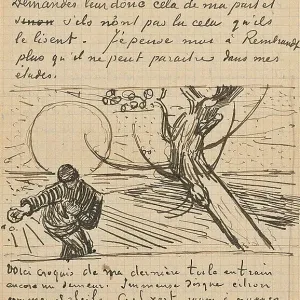 Demandes leur donc cela de ma part et
s'ils n'ont pas lu cela qu'ils
le lisent. J'épense moi à Rembrandt
plus qu'il ne peut paraitre dans mes
etudes.
Voici croquis de ma dernière toile en train
encore un semeur. Immense disque citron
comme soleil. Ciel vert